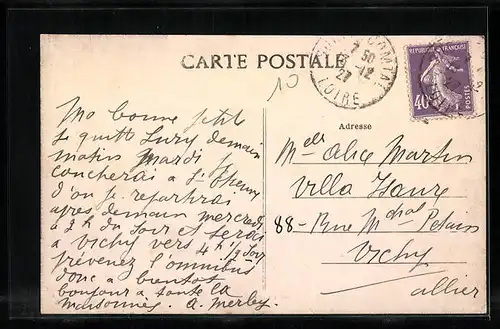 CARTE POSTALE
7 50
12
27
LOIRE
REPUBLIQUE FRANÇAISE
40c
POSTES
10
Adresse
Ma bonne petite
Je quitte Sury demain
matin Mardi je
coucherai a St Etienne
d'ou je repartirai
apres demain mercredi
a 2h du soir et serai
a Vichy vers 4h 1/2 soir
prevenez l'omnibus
donc a bientot
bonjour a toute la
maisonnée A. Merley
Melle Alice Martin
Villa
88 - Rue Mchal Petain
Vichy
Allier